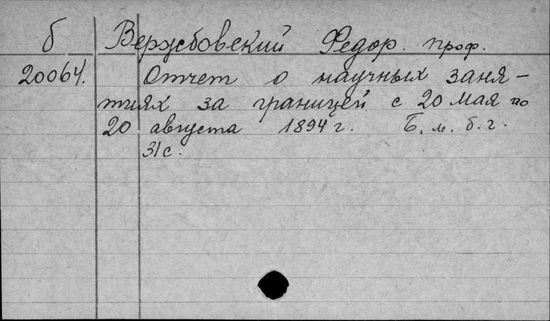 б Вержбовский Федор. проф.
20064. Отчет о научных заня-
тиях за границей с 20 мая по
20 августа 1894 г. Б. м. б. г.
31 с.